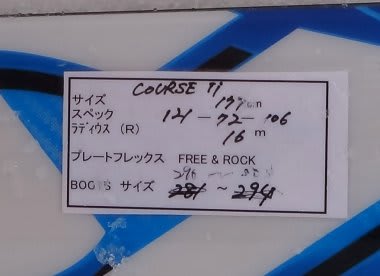 COURSE Ti
サイズ 177cm
スペック 121 - 72 - 106
ラディウス (R) 16 m
プレートフレックス FREE & ROCK
296 ~
BOOTS サイズ 281 ~ 294